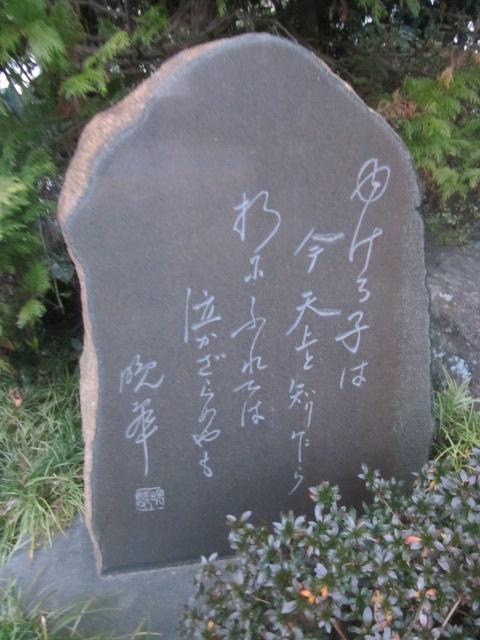 ゆける子は
今天上と知りたら
折にふれては
泣かざらめやも
晩華